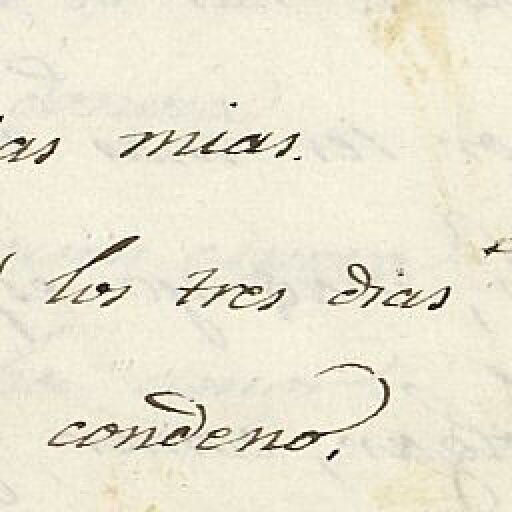 as mias.
los tres dias
condeno,